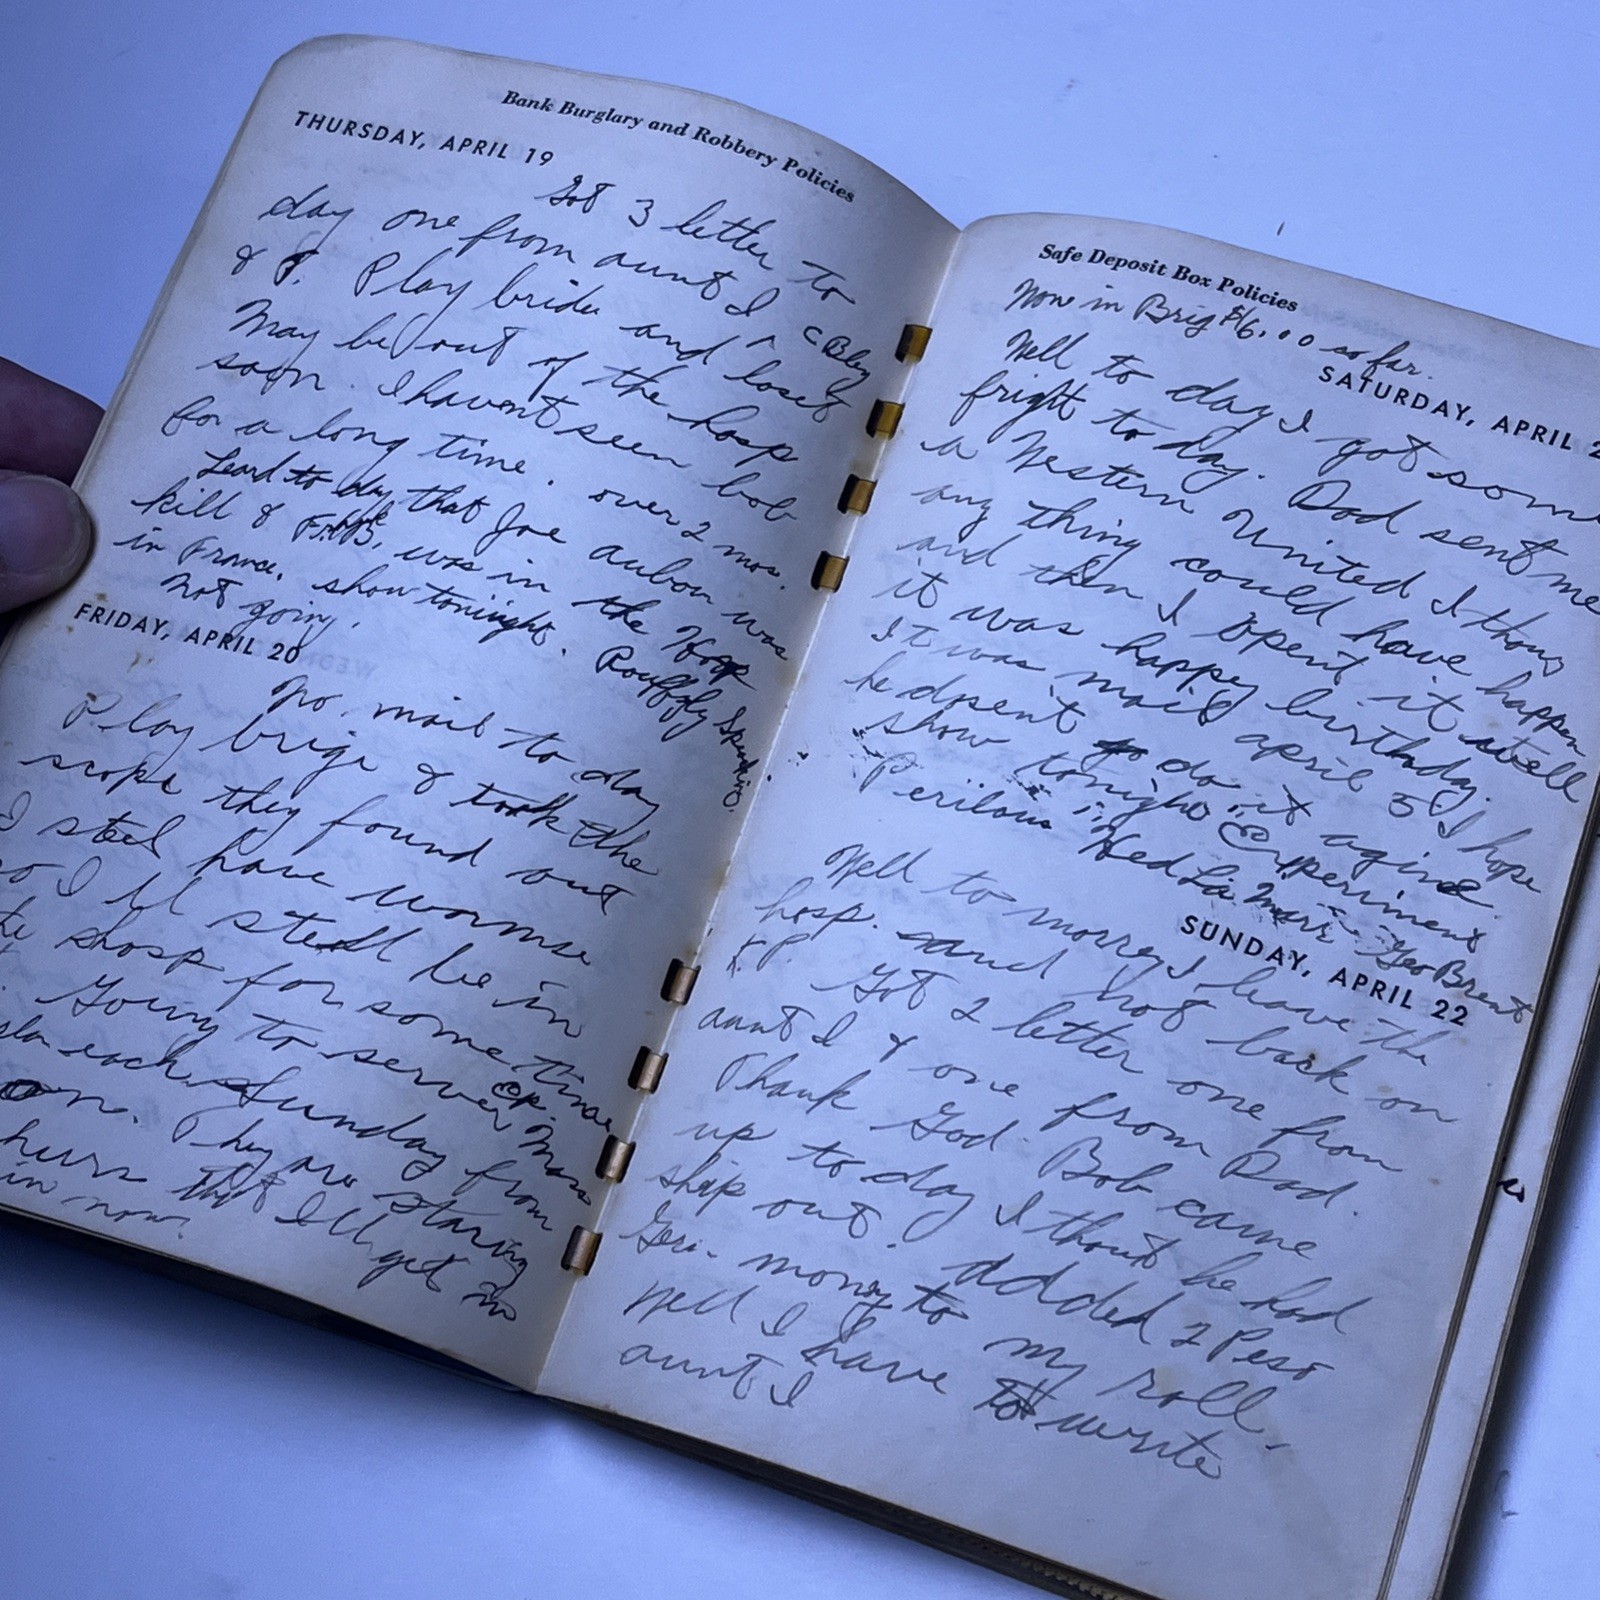 Bank Burglary and Robbery Policies
THURSDAY, APRIL 19
Got 3 letter to
day one from aunt I
& P. Play bride and lost
May be out of the hosp
soon. I havent seen bob
for a long time. over 2 mos.
Leard to day that Joe aubon was
kill & was in the Hosp
in France. show tonight. Rouffly Speaking.
not going.
FRIDAY, APRIL 20
No. mail to day
Play brige & took the
scope they found out
I steel have wormse
so I ll steell be in
the shosp for some time
Going to server Mass
each Sunday from
on. They are staring
hurs that I ll get in
in now.
Safe Deposit Box Policies
Now in Brig $16.00 so far.
SATURDAY, APRIL 2
Well to day I got some
fright to day. Dad sent me
a Western United I thoug
any thing could have happen
and then I opent it well
it was happy birthday.
It was mail april 5 I hope
he dosent do it agine.
show tonight "Experiment
Perilous" Hed La Marr - Geo Brent
SUNDAY, APRIL 22
Well to morrey I leave the
hosp. and not back on
K.P.
Got 2 letter one from
aunt I & one from Dad.
Thank God. Bob came
up to day I thout he had
ship out. added 2 Peso
Geri- money to my roll.
Well I have to write
aunt I